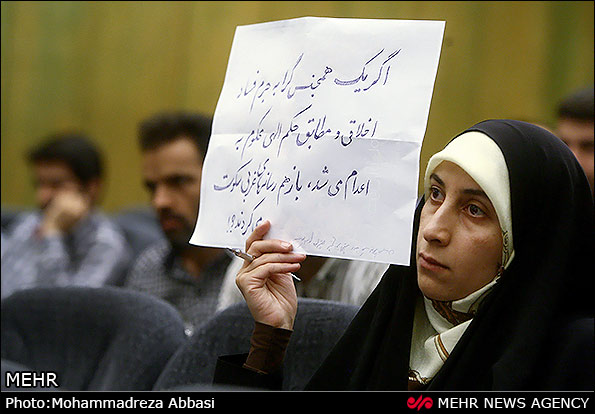 اگر یک همجنس گرا به جرم فساد
اخلاقی و مطابق حکم الهی محکوم به
اعدام می شد، باز هم رسانه های غربی سکوت
می کردند؟!
MEHR
Photo:Mohammadreza Abbasi
MEHR NEWS AGENCY